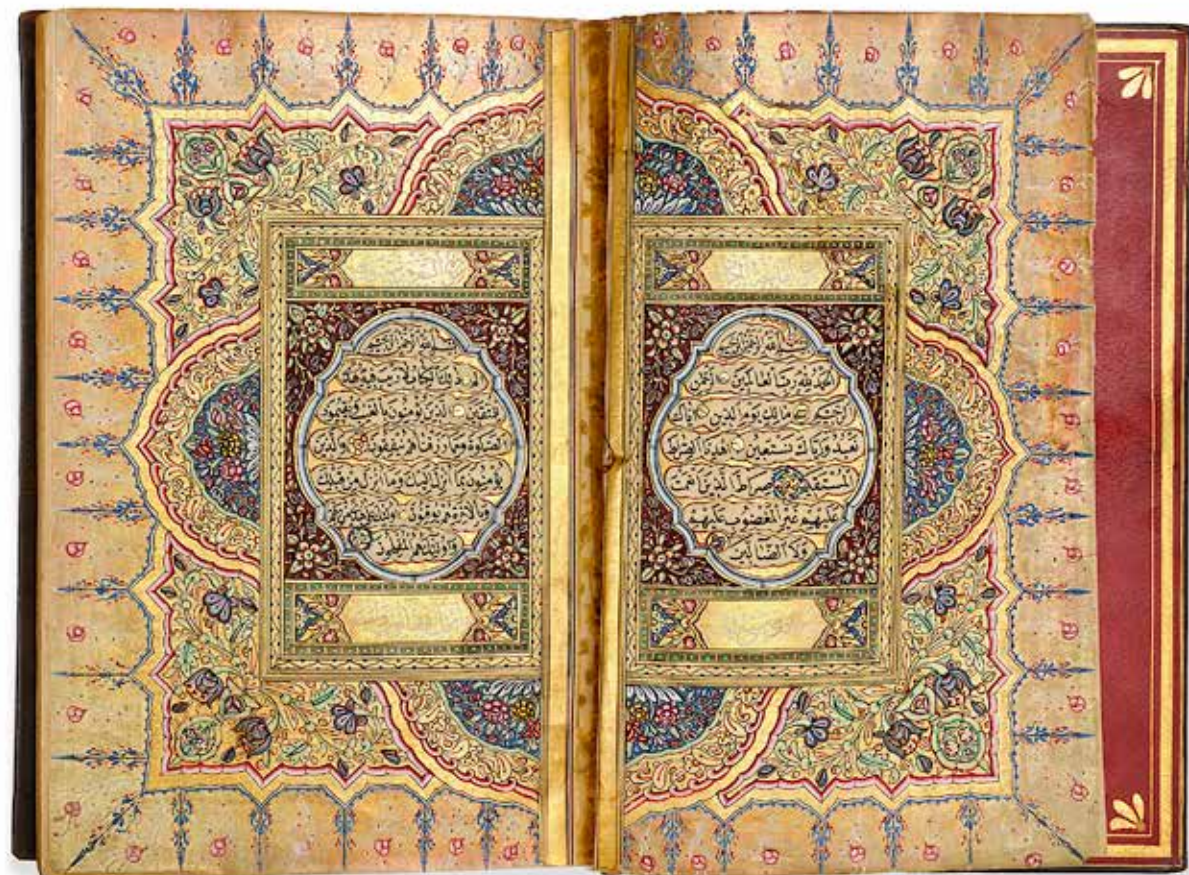 بسم الله الرحمن الرحيم
الحمد لله رب العالمين الرحمن
الرحيم مالك يوم الدين اياك
نعبد واياك نستعين اهدنا الصراط
المستقيم صراط الذين انعمت
عليهم غير المغضوب عليهم
ولا الضالين
بسم الله الرحمن الرحيم
الم ذلك الكتاب لا ريب فيه هدى
للمتقين الذين يؤمنون بالغيب ويقيمون
الصلوة ومما رزقناهم ينفقون والذين
يؤمنون بما انزل اليك وما انزل من قبلك
وبالاخرة هم يوقنون اولئك على هدى من ربهم
واولئك هم المفلحون